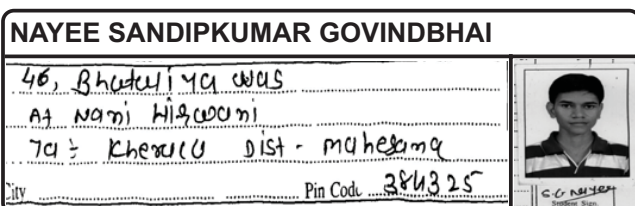 NAYEE SANDIPKUMAR GOVINDBHAI
46, Bhatuliya was
At Nani Hirwani
Ta: Kheralu Dist - mahesana
City Pin Code 384325
S.G Nayee
Student Sign.